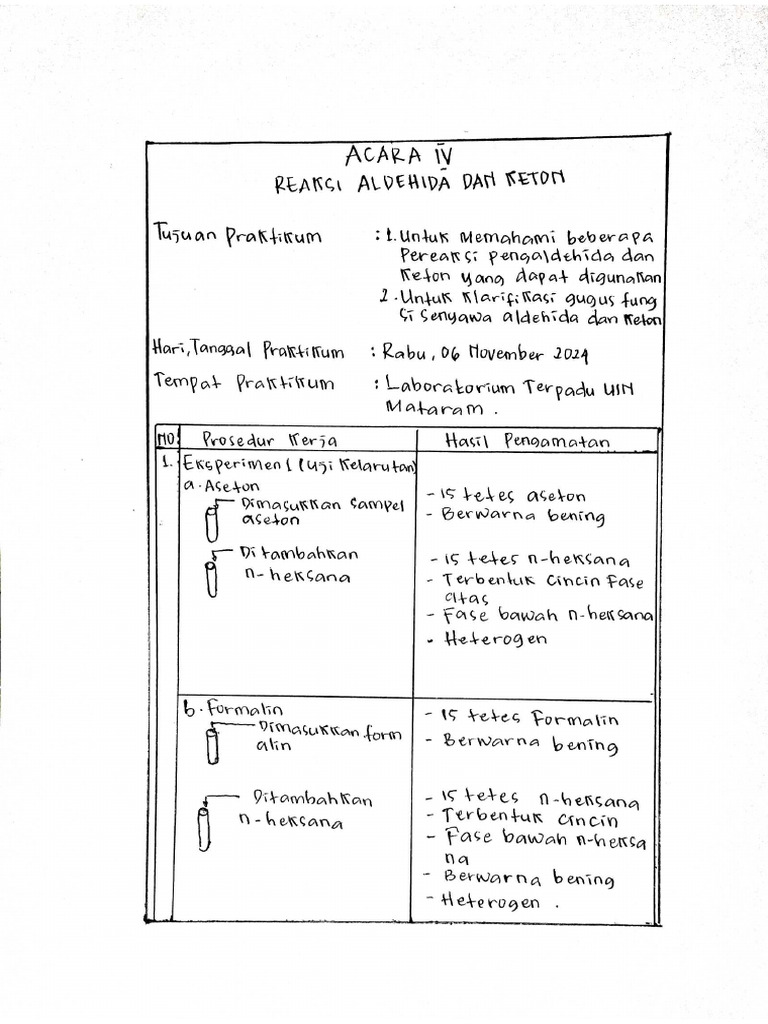 ACARA IV
REAKSI ALDEHIDA DAN KETON
Tujuan Praktikum : 1. Untuk Memahami beberapa
Pereaksi pengaldehida dan
Keton yang dapat digunakan
2. Untuk Klarifikasi gugus fung
si senyawa aldehida dan keton
Hari, Tanggal Praktikum : Rabu, 06 November 2024
Tempat Praktikum : Laboratorium Terpadu UIN
Mataram.
NO Prosedur Kerja Hasil Pengamatan
1. Eksperimen 1 (Uji Kelarutan)
a. Aseton
Dimasukkan sampel
aseton
- 15 tetes aseton
- Berwarna bening
Ditambahkan
n-heksana
- 15 tetes n-heksana
- Terbentuk cincin Fase
atas
- Fase bawah n-heksana
- Heterogen
b. Formalin
Dimasukkan form
alin
- 15 tetes Formalin
- Berwarna bening
Ditambahkan
n-heksana
- 15 tetes n-heksana
- Terbentuk cincin
- Fase bawah n-heksa
na
- Berwarna bening
- Heterogen.